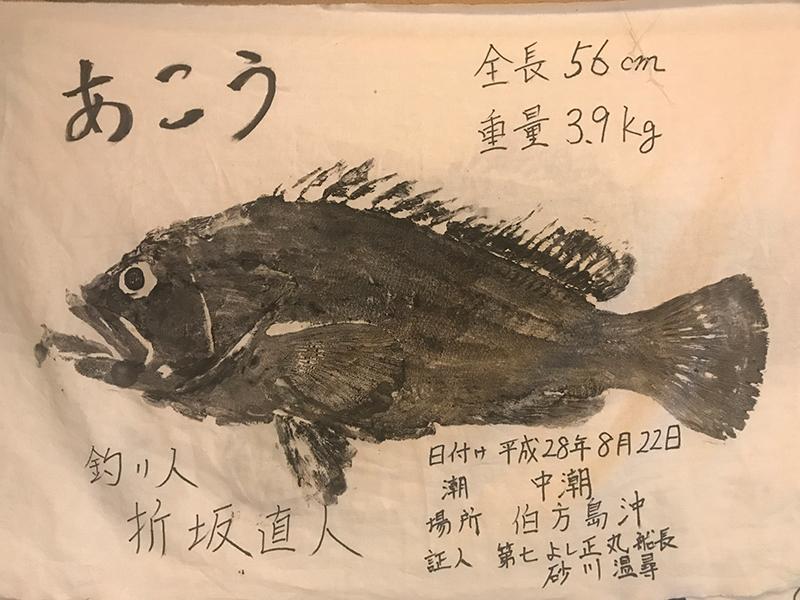 あこう
全長 56cm
重量 3.9kg
釣り人
折坂直人
日付け 平成28年8月22日
潮 中潮
場所 伯方島沖
証人 第七よし正丸船長
砂川温尋